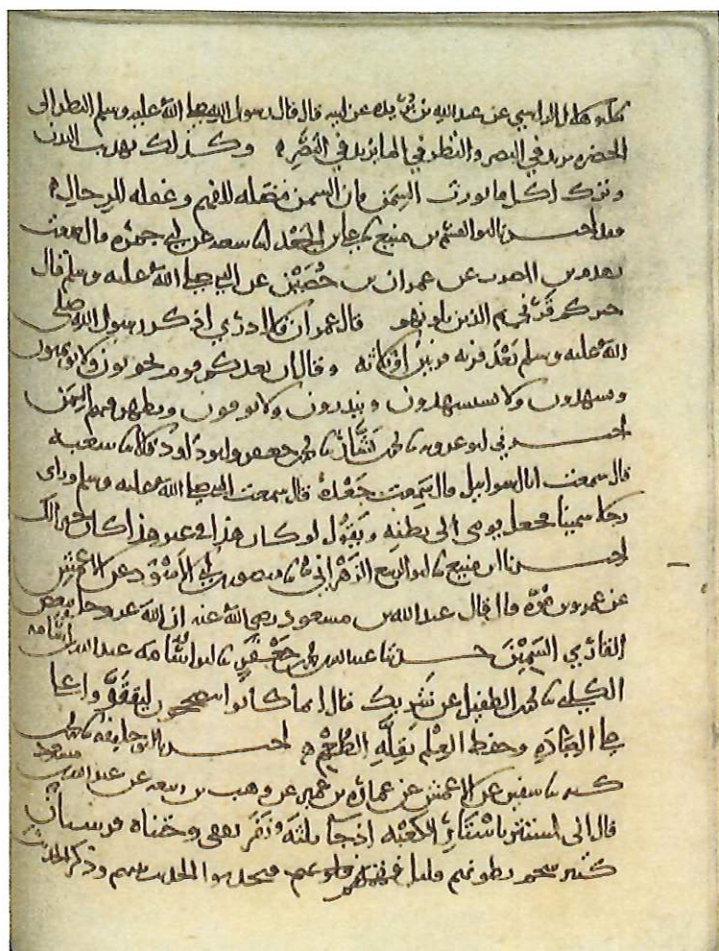 عن عبد الله بن بريده عن ابيه قال قال رسول الله صلى الله عليه وسلم النظر الى
الخضره يزيد في البصر والنظر في الما يزيد في البَصَرِ وكذلك
وترك اكل ما يورث السِمَن فان السمن للفهم وغفله للرجال
ابو القسم بن منيع علي بن الجَعْد انا عن ابي جمره قال سمعت
عن عمران بن حُصَيْن عن النبي صلى الله عليه وسلم قال
خيركم قَرْني ثم الذين يلونهم قال عمران فلا ادري اذكر رسول الله صلى
الله عليه وسلم بَعْدَ قرنه قرنين او ثلاثه وقال ان بعدكم قوم يخونون ولا يوتمنون
ويشهدون ولا يستشهدون وينذرون ولا يوفون ويظهر فيهم السِمَن
ابو عروبه محمد بن بَشَّار محمد بن جعفر وابو داود قالا شعبه
قال سمعت ابا اسراييل قال سَمِعت جَعْدة قال سمعت النبي صلى الله عليه وسلم وراى
رجلا سمينا فجعل يومي الى بطنِهِ ويَقُول لو كان هذا في غير هذا كان خيرا لك
ابن منيع ابو الربيع الزَهْرانِيُّ منصور بن ابي الاَسْوَد عن الاعْمَش
عن عمرو بن مُرّه قال قال عبد الله بن مسعود رضي الله عنه ان الله عز وجل يبغض
القارِي السَمِيْنَ محمد بن جَعْفَرٍ ابو اُسامَه عبد الله بن اسامه
الكلبي محمد بن الطفيل عن شَريك قال انما كانوا
على العِبَادَةِ وحفظ العِلْم بقِلَّه الطُعْمِ ابو خليفه محمد بن
كثير سفين عن الاعمش عن عماره بن عمير عن وهب بن ربيعه عن عبد الله بن مسعود
قال اني لمستتر باَسْتَارِ الكَعْبَه اذ جا ثلثَه نَفَر ثقفي وختناه قرشيان
كثير شحم بطونهم قليل فِقْهُ قلوبهم فتحدثوا الحديث بينهم وذكر الحديث